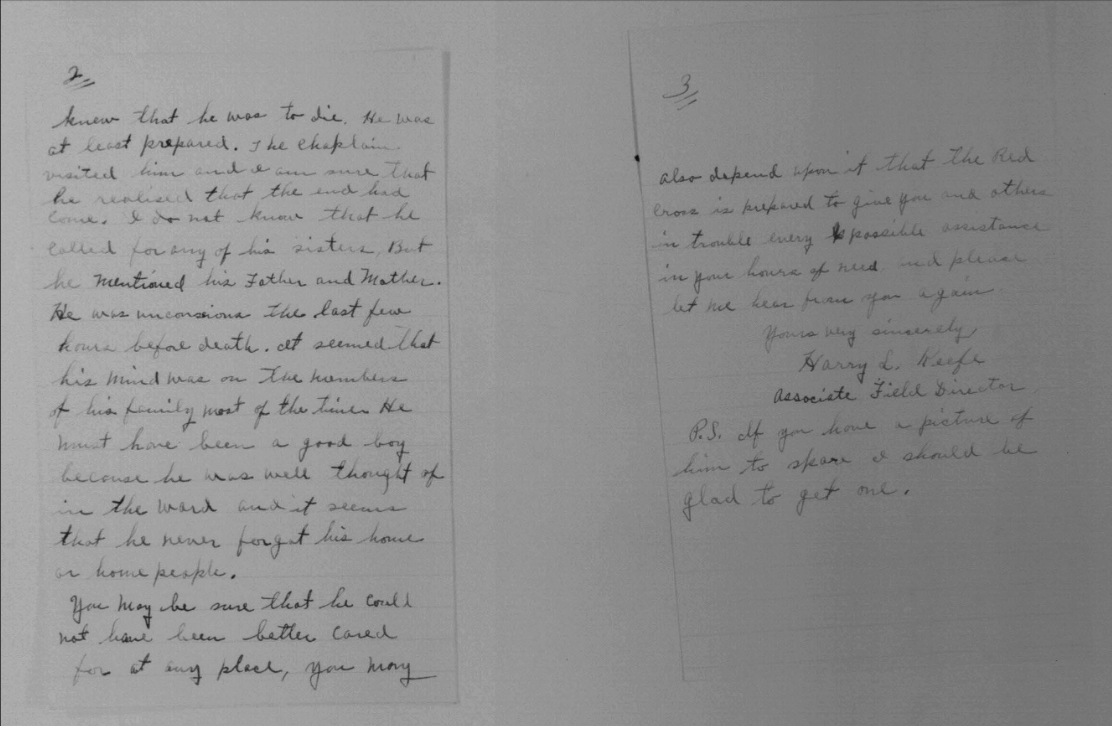 2
knew that he was to die. He was
at least prepared. The chaplain
visited him and I am sure that
he realised that the end had
come. I do not know that he
called for any of his sisters. But
he mentioned his Father and Mother.
He was unconscious the last few
hours before death. It seemed that
his mind was on the members
of his family most of the time. He
must have been a good boy
because he was well thought of
in the ward and it seems
that he never forgot his home
or home people.
You may be sure that he could
not have been better cared
for at any place, you may
3
also depend upon it that the Red
Cross is prepared to give you and others
in trouble every possible assistance
in your hours of need and please
let me hear from you again
Yours very sincerely
Harry L. Keefe
Associate Field Director
P.S. If you have a picture of
him to spare I should be
glad to get one.